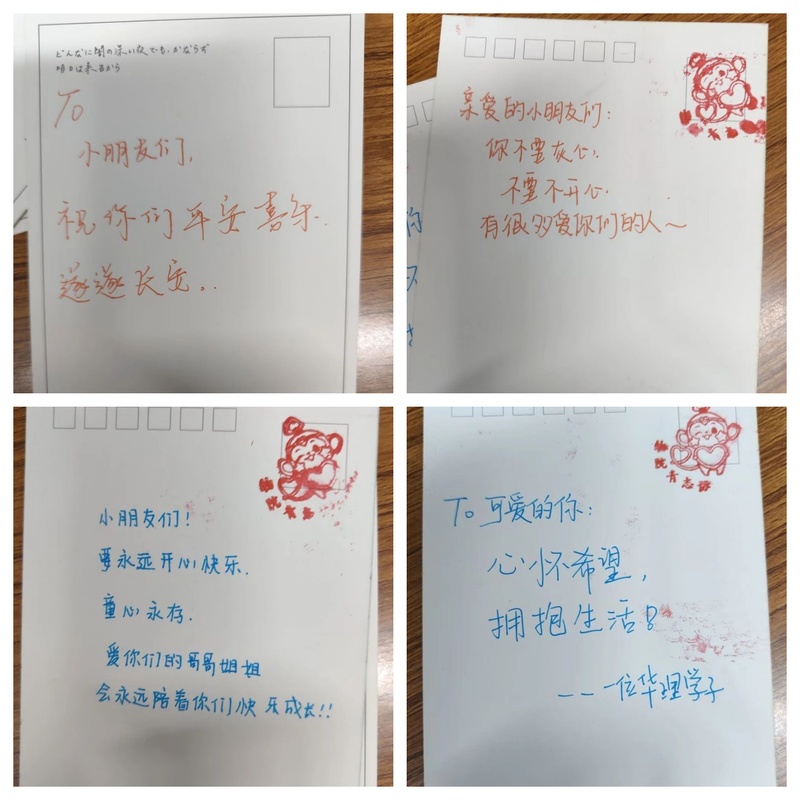 どんなに闇の深い夜でも、かならず
明日は来るから
To
小朋友们,
祝你们平安喜乐.
遂遂长安..
亲爱的小朋友们:
你不要灰心.
不要不开心.
有很多爱你们的人~
小朋友们!
要永远开心快乐.
童心永存.
爱你们的哥哥姐姐
会永远陪着你们快乐成长!!
院青志
To 可爱的你:
心怀希望,
拥抱生活!
———一位华理学子
院青志